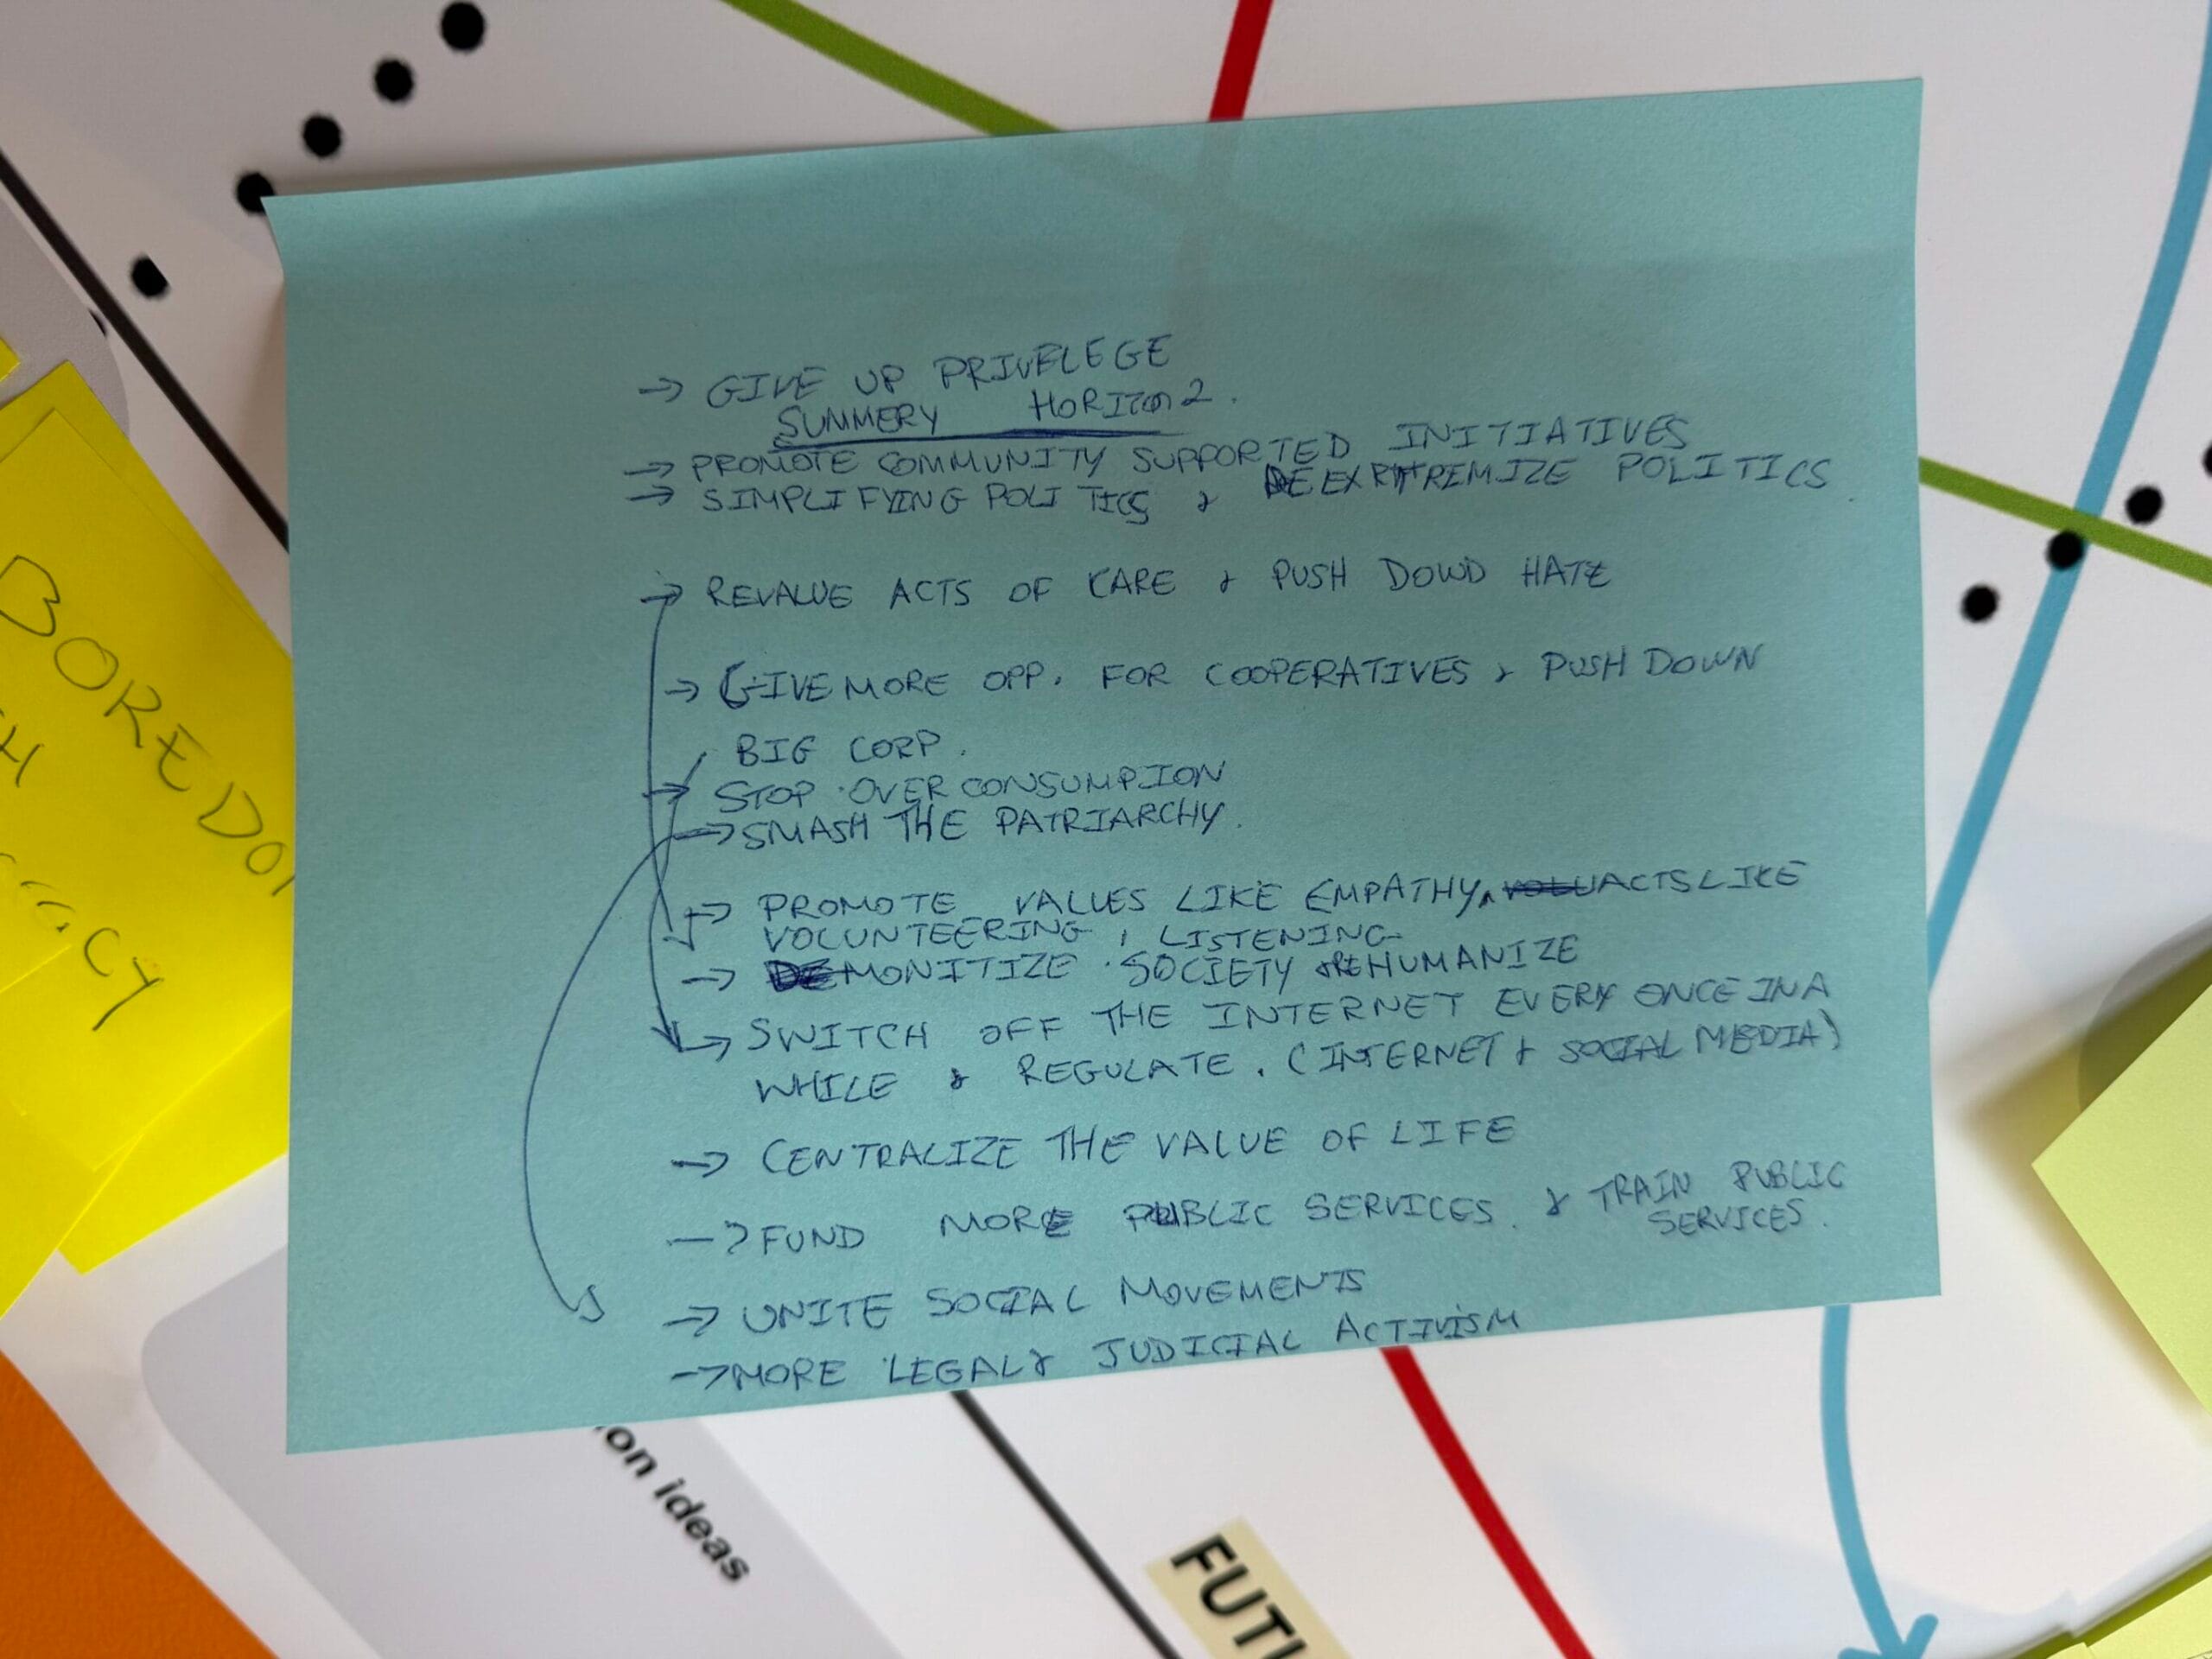 → GIVE UP PRIVELEGE
SUMMERY HORIZON 2.
→ PROMOTE COMMUNITY SUPPORTED INITIATIVES
→ SIMPLIFYING POLITICS & DE EXRTREMIZE POLITICS.
→ REVALUE ACTS OF CARE & PUSH DOWD HATE
→ GIVE MORE OPP. FOR COOPERATIVES & PUSH DOWN
BIG CORP.
→ STOP OVER CONSUMPION
→ SMASH THE PATRIARCHY.
→ PROMOTE VALUES LIKE EMPATHY, ACTS LIKE
VOLUNTEERING, LISTENING
→ DEMONITIZE SOCIETY & REHUMANIZE
→ SWITCH OFF THE INTERNET EVERY ONCE IN A
WHILE & REGULATE. (INTERNET & SOCIAL MEDIA)
→ CENTRALIZE THE VALUE OF LIFE
→ FUND MORE PUBLIC SERVICES. & TRAIN PUBLIC
SERVICES.
→ UNITE SOCIAL MOVEMENTS
→ MORE LEGAL & JUDICIAL ACTIVISM
BOREDO
H
CY
on ideas
FUT